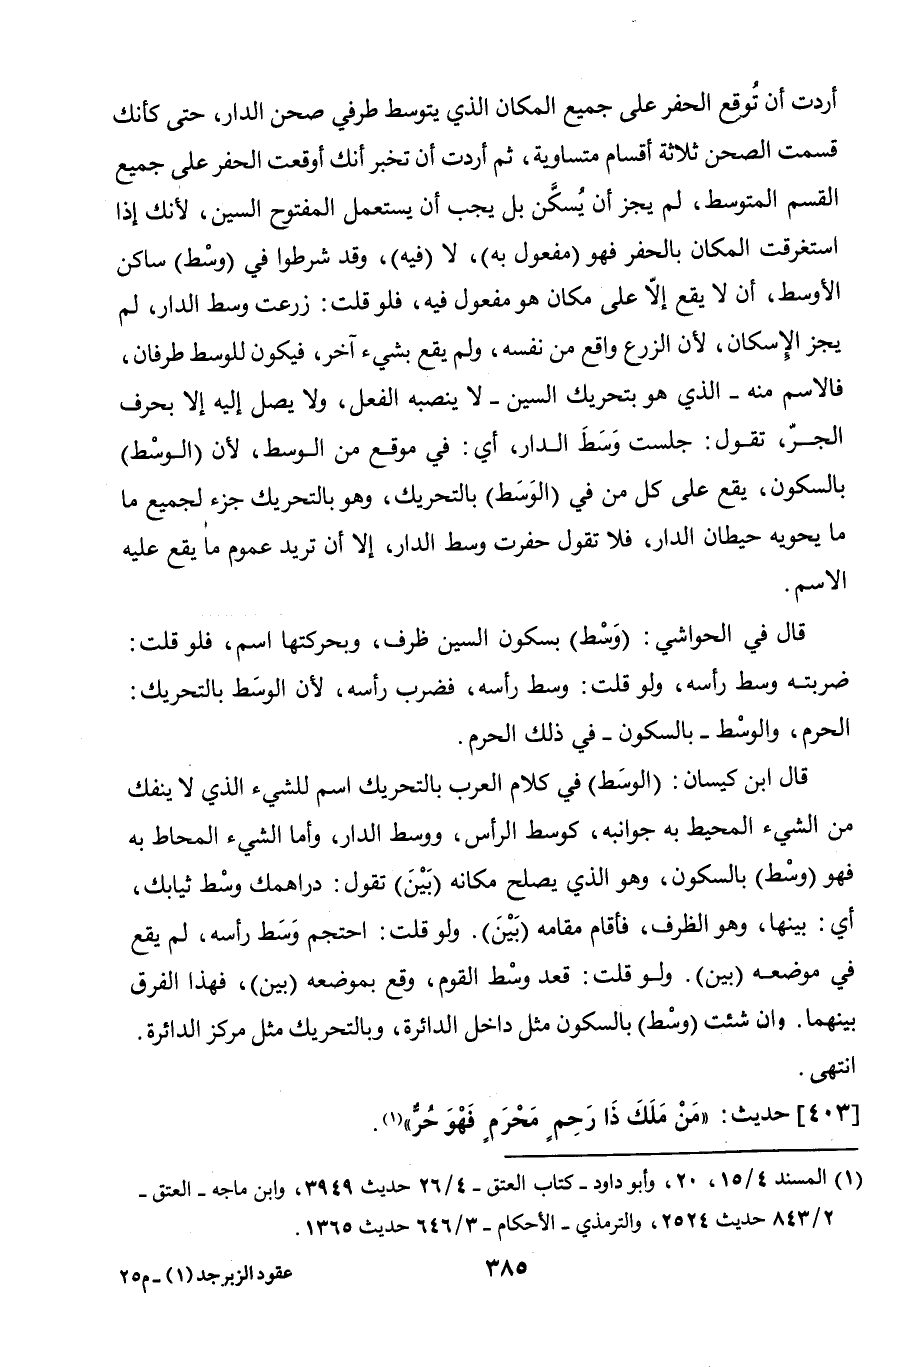 أردت أن تُوقع الحفر على جميع المكان الذي يتوسط طرفي صحن الدار، حتى كأنك
قسمت الصحن ثلاثة أقسام متساوية، ثم أردت أن تخبر أنك أوقعت الحفر على جميع
القسم المتوسط، لم يجز أن يُسكَّن بل يجب أن يستعمل المفتوح السين، لأنك إذا
استغرقت المكان بالحفر فهو (مفعول به)، لا (فيه)، وقد شرطوا في (وسْط) ساكن
الأوسط، أن لا يقع إلّا على مكان هو مفعول فيه، فلو قلت: زرعت وسط الدار، لم
يجز الإسكان، لأن الزرع واقع من نفسه، ولم يقع بشيء آخر، فيكون للوسط طرفان،
فالاسم منه - الذي هو بتحريك السين - لا ينصبه الفعل، ولا يصل إليه إلا بحرف
الجرّ، تقول: جلست وَسَطَ الدار، أي: في موقع من الوسط، لأن (الوسْط)
بالسكون، يقع على كل من في (الوَسَط) بالتحريك، وهو بالتحريك جزء لجميع ما
ما يحويه حيطان الدار، فلا تقول حفرت وسط الدار، إلا أن تريد عموم ما يقع عليه
الاسم.
قال في الحواشي: (وَسْط) بسكون السين ظرف، وبحركتها اسم، فلو قلت:
ضربته وسط رأسه، ولو قلت: وسط رأسه، فضرب رأسه، لأن الوسَط بالتحريك:
الحرم، والوسْط - بالسكون - في ذلك الحرم.
قال ابن كيسان: (الوسَط) في كلام العرب بالتحريك اسم للشيء الذي لا ينفك
من الشيء المحيط به جوانبه، كوسط الرأس، ووسط الدار، وأما الشيء المحاط به
فهو (وسْط) بالسكون، وهو الذي يصلح مكانه (بَيْنَ) تقول: دراهمك وسْط ثيابك،
أي: بينها، وهو الظرف، فأقام مقامه (بَيْنَ). ولو قلت: احتجم وَسَط رأسه، لم يقع
في موضعه (بين). ولو قلت: قعد وسْط القوم، وقع بموضعه (بين)، فهذا الفرق
بينهما. وان شئت (وسْط) بالسكون مثل داخل الدائرة، وبالتحريك مثل مركز الدائرة.
انتهى.
[٤٠٣] حديث: «مَنْ مَلَكَ ذَا رَحِمٍ مَحْرَمٍ فَهْوَ حُرٌّ»(١).
(١) المسند ١٥/٤، ٢٠، وأبو داود - كتاب العتق - ٢٦/٤ حديث ٣٩٤٩، وابن ماجه - العتق -
٨٤٣/٢ حديث ٢٥٢٤، والترمذي - الأحكام - ٦٤٦/٣ حديث ١٣٦٥.
٣٨٥
عقود الزبرجد (١) - م٢٥